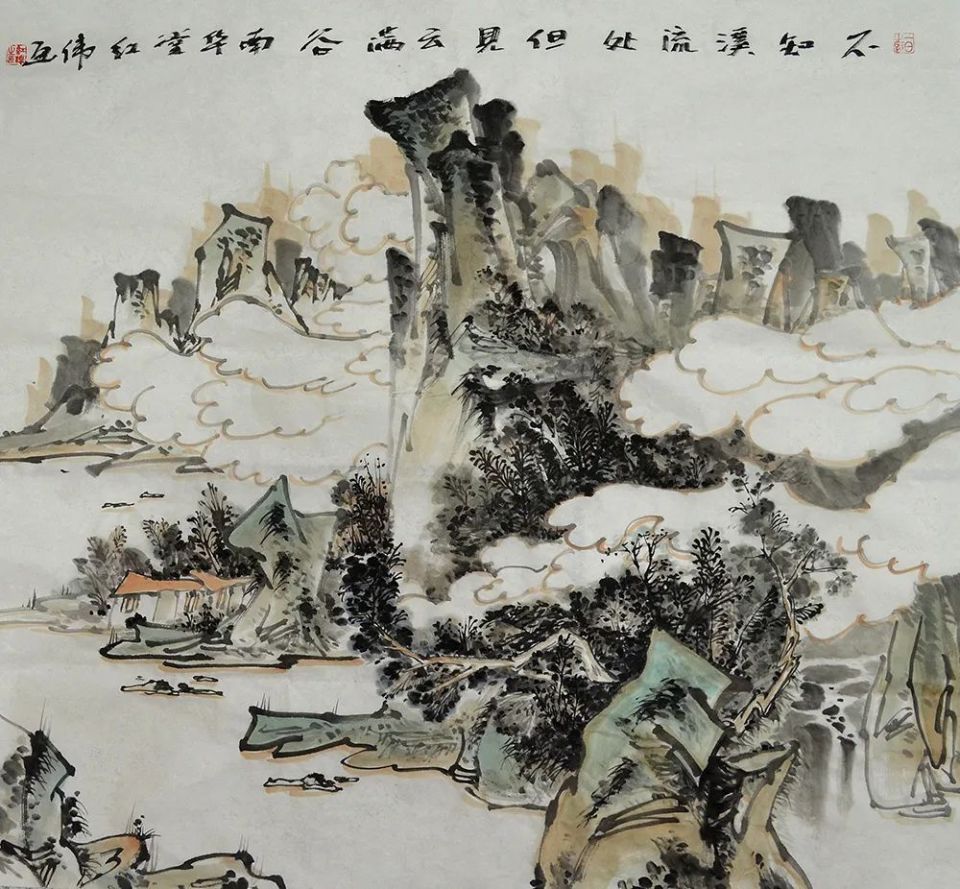 不知溪流处但见云满谷南华堂红伟画